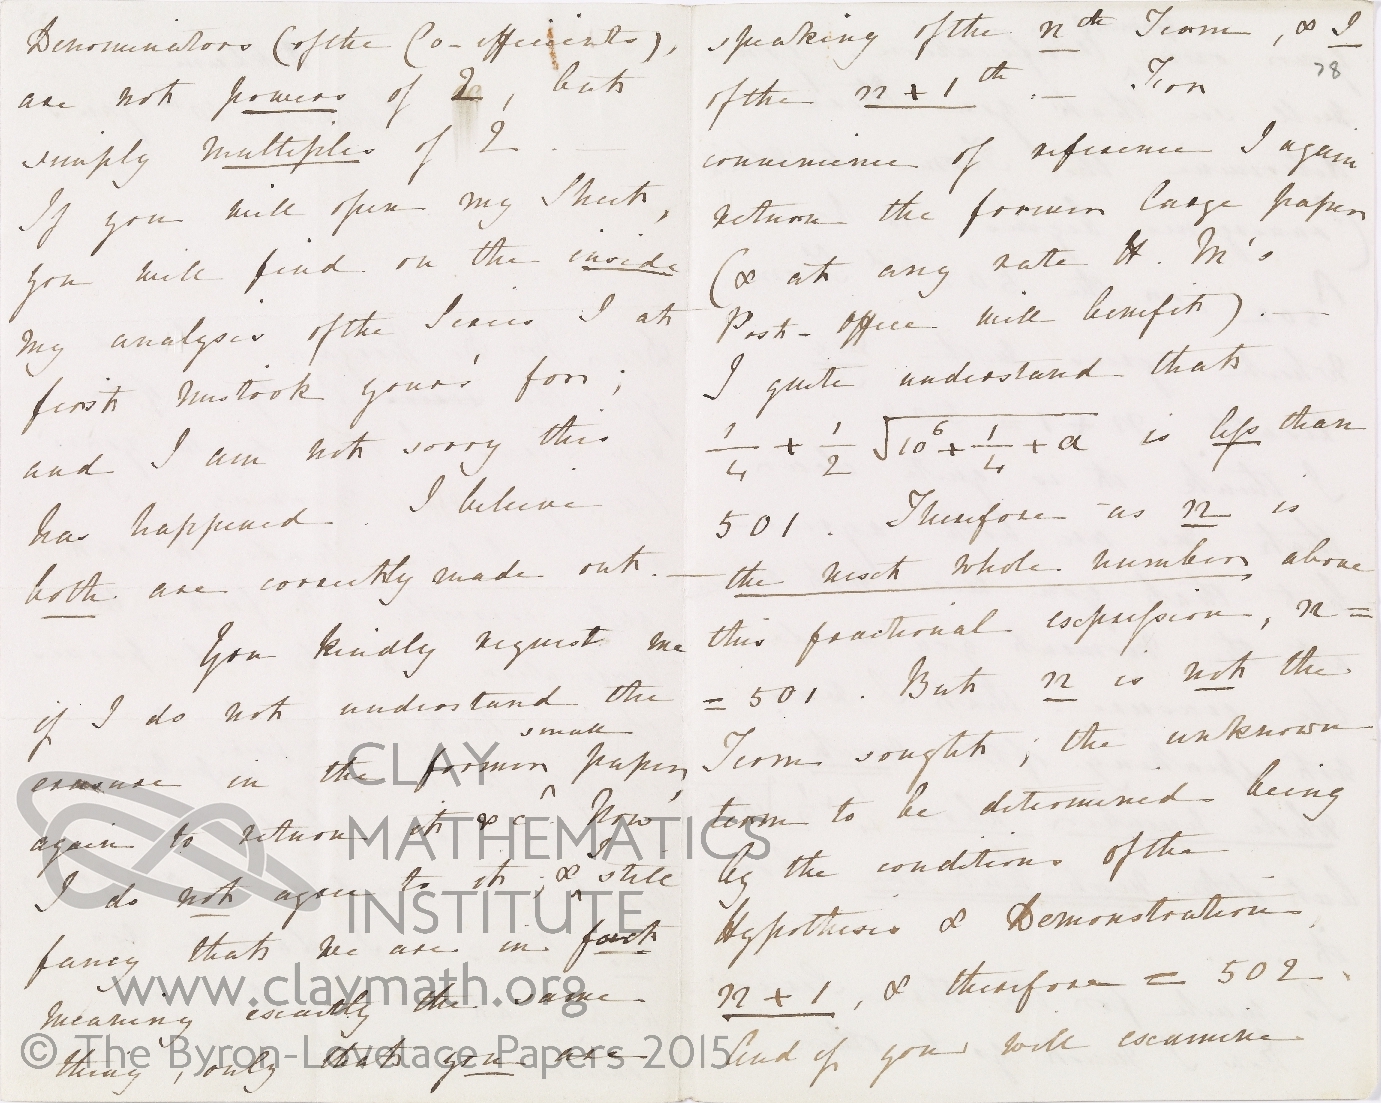 Denominators (of the Co-efficients),
are not powers of 2, but
simply multiples of 2. —
If you will open my Sheet,
you will find on the inside
my analysis of the Series I at
first mistook your's for;
and I am not sorry this
has happened. I believe
both are correctly made out. —
You kindly request me
if I do not understand the
erasure in the former small paper,
again to return it &c. Now
I do not agree to it; & I still
fancy that we are in fact
meaning exactly the same
thing, only that you are
speaking of the nth Term, & I
78
of the n + 1th. — For
convenience of reference I again
return the former large paper
(& at any rate H. M's
Post-Office will benefit). —
I quite understand that
1/4 + 1/2 √10⁶ + 1/4 + a is less than
501. Therefore as n is
the next whole number above
this fractional expression, n =
= 501. But n is not the
Term sought; the unknown
term to be determined being
by the conditions of the
Hypothesis & Demonstration
n + 1, & therefore = 502.
And if you will examine
CLAY
MATHEMATICS
INSTITUTE
www.claymath.org
© The Byron-Lovelace Papers 2015